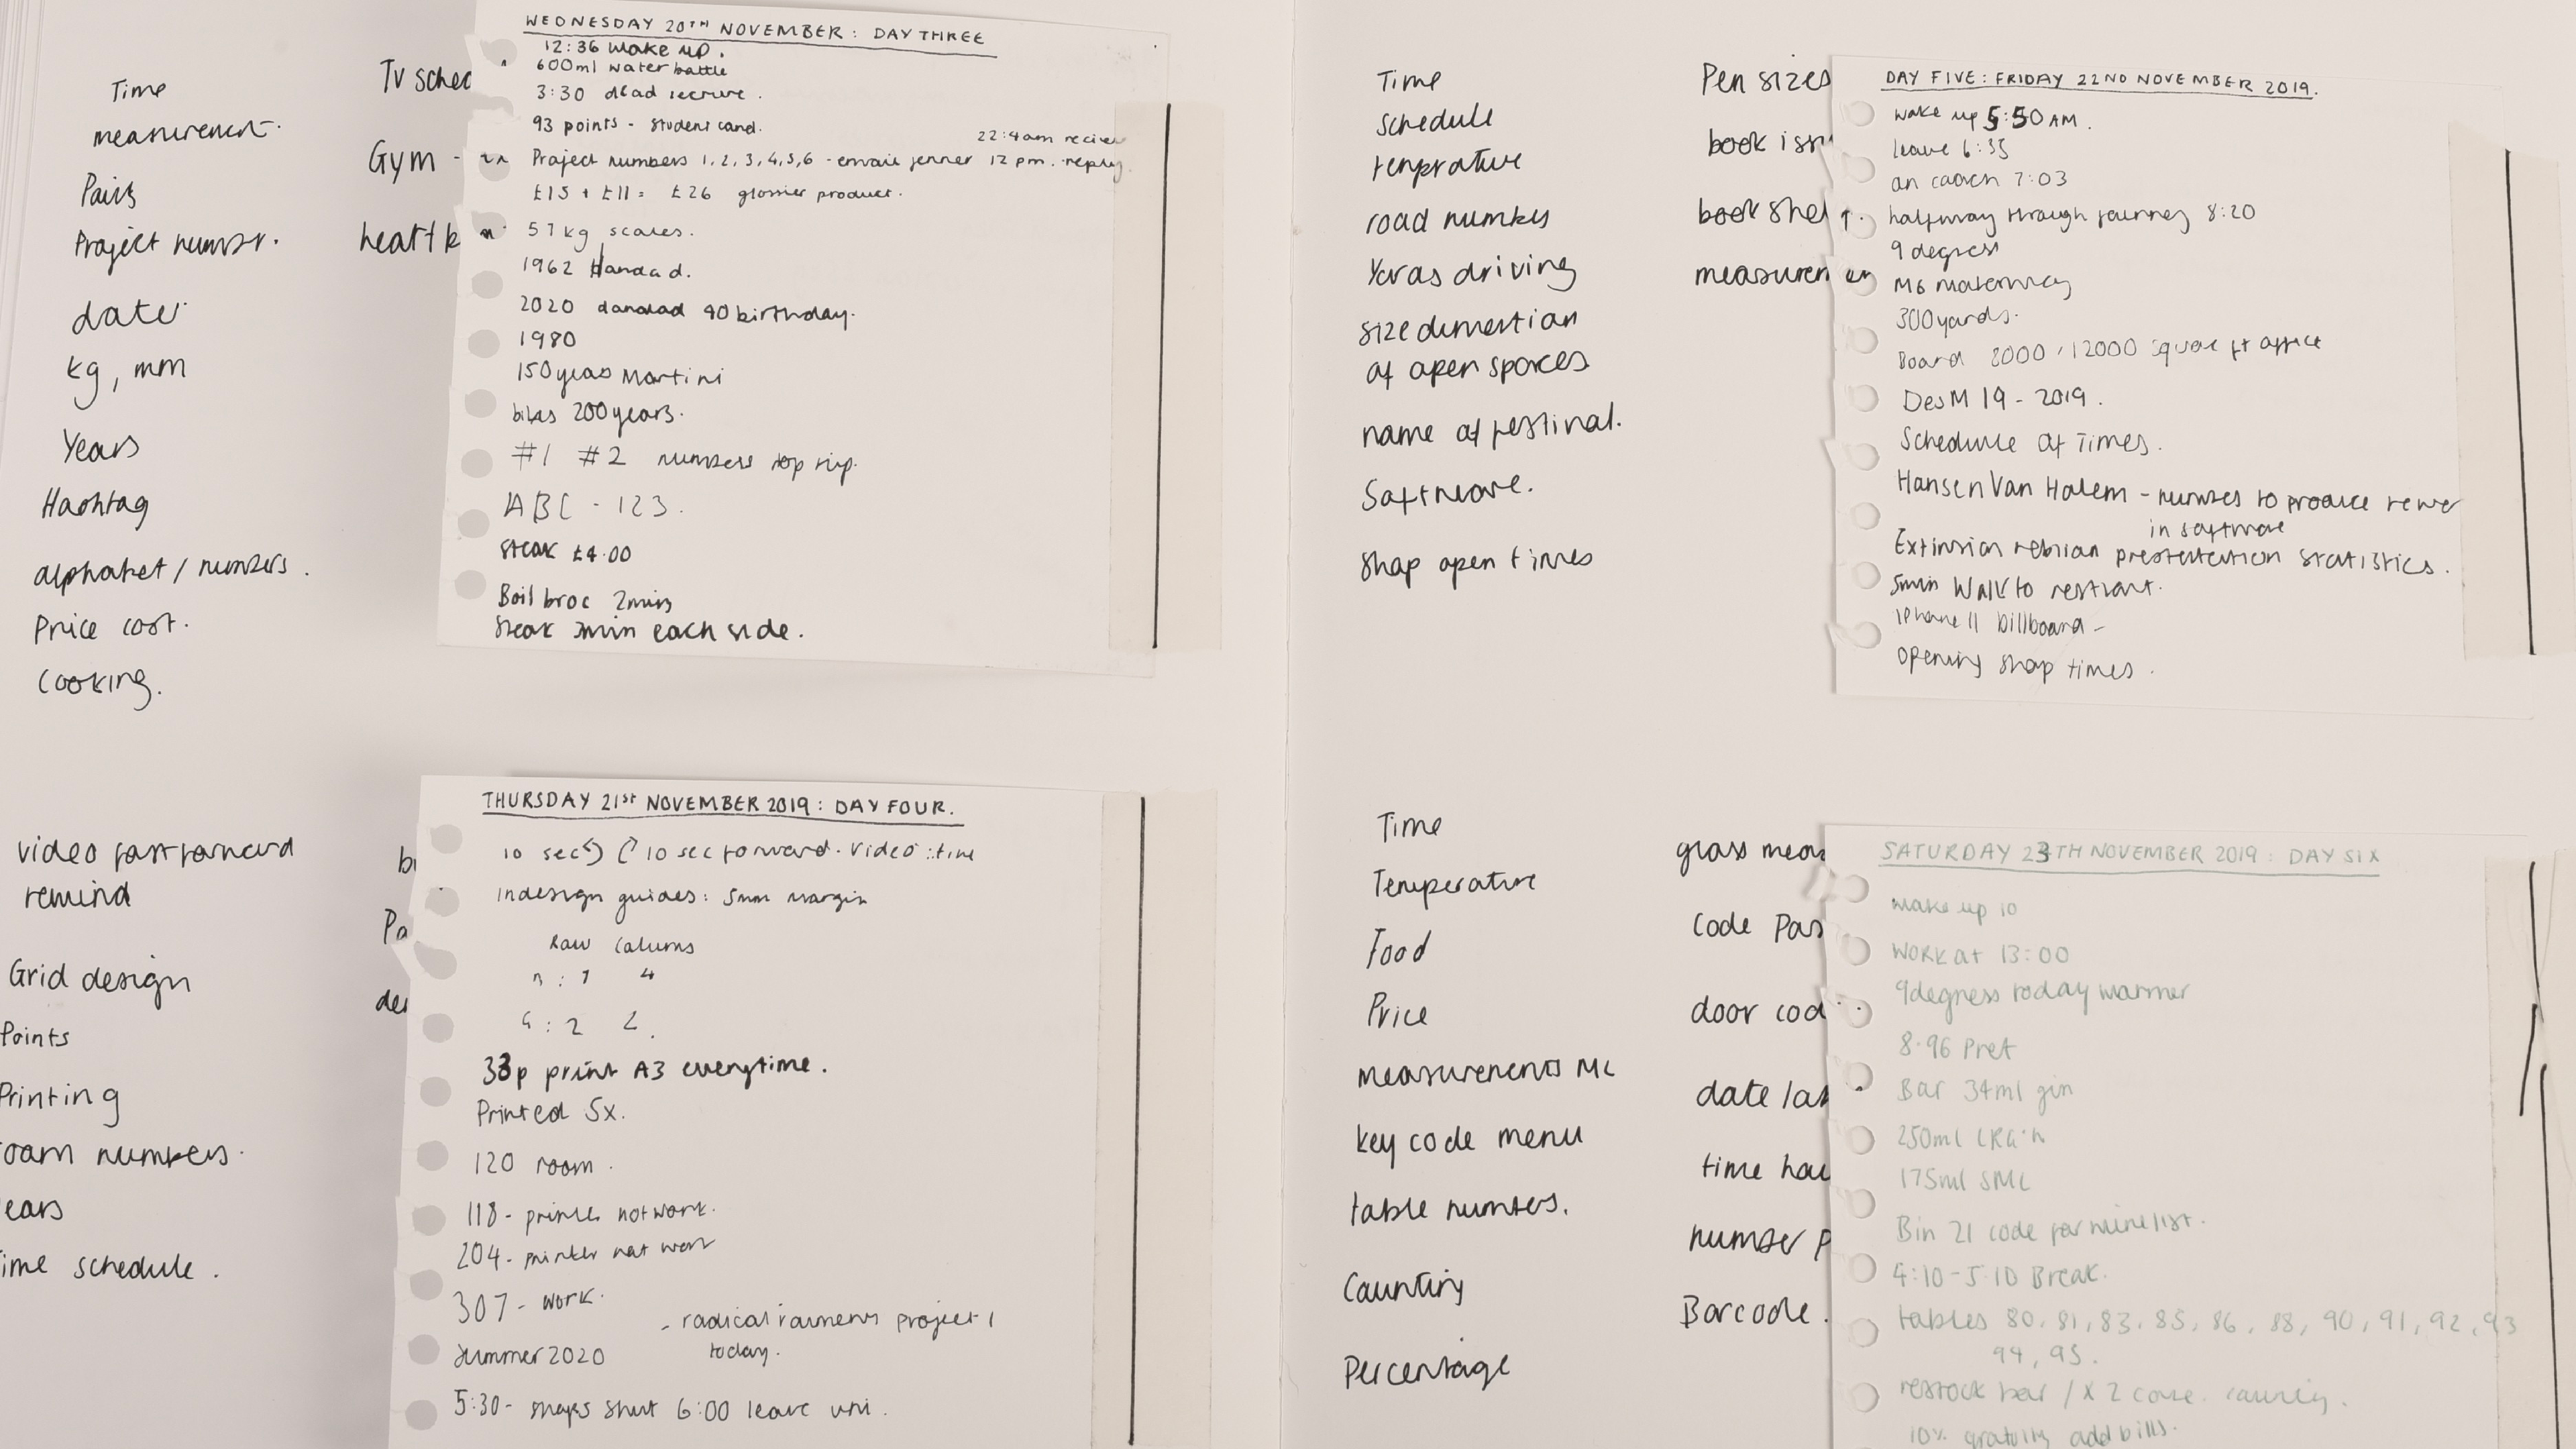 Time
measurement.
Pairs
Project number.
date
kg, mm
Years
Hashtag
alphabet / numbers.
Price cost.
Cooking.
Tv sched
Gym -
WEDNESDAY 20TH NOVEMBER: DAY THREE
12:36 wake up.
600ml water bottle
3:30 dead lecture.
93 points - student card.
22:4am
Project numbers 1,2,3,4,5,6 - email jenner 12 pm. reply
£15 + £11 = £26 glossier product.
57kg scales.
1962
2020 dandad 40 birthday.
1980
150 years Martini
bikes 200 years.
#1 #2 numbers top
ABC - 123.
Steak £4.00
Boil broc 2mins
Steak 3min each side.
Time
Schedule
temprature
road numbers
Years driving
size dimention
of open spaces
name of festival.
Software.
Shop open times
Pen sizes
book
book shel
measuremen
DAY FIVE: FRIDAY 22ND NOVEMBER 2019.
wake up 5:50 AM.
leave 6:35
on coach 7:03
halfway through journey 8:20
9 degress
M6 motorway
300 yards.
Board 2000 / 12000 square ft office
DesM 19 - 2019.
Schedule of Times.
Hansen Van Halem - numbers to produce
in software
Extinsion reblion statistics.
5min Walk to
iPhone 11 billboard -
opening shop times.
video fast forward
remind
Grid design
Points
Printing
oom numbers.
ears
ime schedule.
THURSDAY 21st NOVEMBER 2019: DAY FOUR.
10 sec 10 sec forward. video : time
Indesign guides: 5mm margin
Row Colums
: 1 4
: 2 2.
33p print A3 everytime.
Printed 5x.
120 room.
118 - printer not work.
204 - printer not work
307 - work.
- radical project 1
today.
Summer 2020
5:30 - shops shut 6:00 leave uni.
Time
Temperature
Food
Price
measurements ML
key code menu
table numbers.
Counting
Percentage
glass meas
Code Pas
door cod
date
time
number p
Barcode.
SATURDAY 23TH NOVEMBER 2019: DAY SIX
wake up 10
Work at 13:00
9 degress today warmer
8.96 Pret
Bar 34ml gin
250ml
175ml SML
Bin 21 code for wine list.
4:10 - 5:10 Break.
tables 80, 81, 83, 85, 86, 88, 90, 91, 92, 93
94, 95.
restock bar / x 2
10% gratuity add bills.